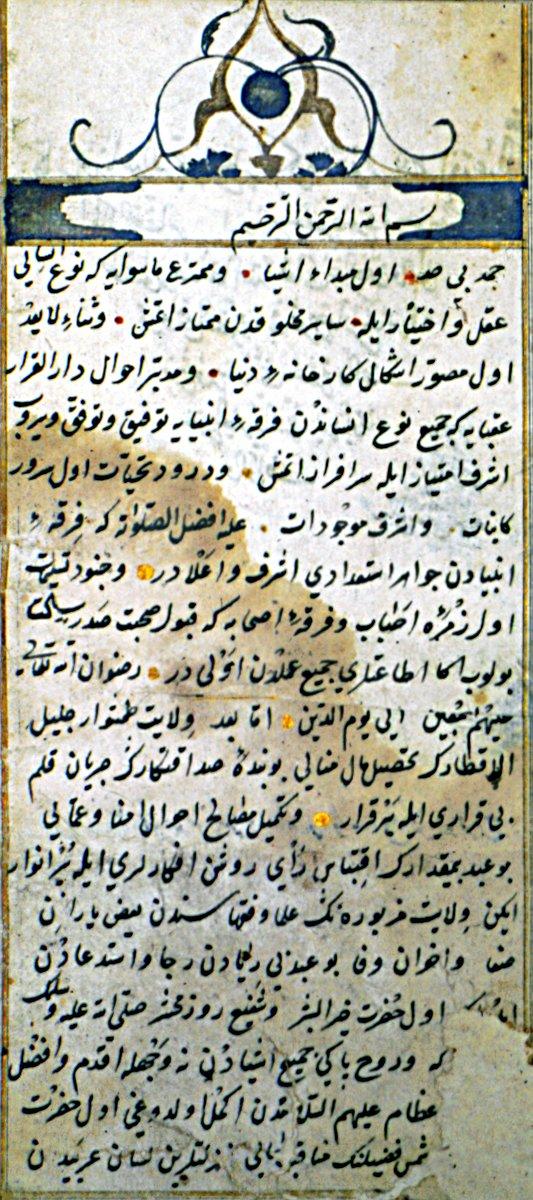 بسم الله الرحمن الرحيم
حمد بی حد اول مبداء اشیا و مخترع ماسوایه که نوع انسانی
عقل و اختیار ایله سایر مخلوقدن ممتاز اتمش و ثناء لایعد
اول مصور اشکال کارخانهٔ دنیا و مدبر احوال دار القرار
عقبایه که جمیع نوع انساندن فرقهٔ انبیایه توفیق و توفق ویروب
اشرف امتیاز ایله سرافراز اتمش و درود و تحیات اول سرور
کاینات و اشرف موجودات علیه افضل الصلواته که فرقهٔ
انبیادن جواهر استعدادی اشرف و اعلادر و جنود تسلیمات
اول زمرهٔ احباب و فرقهٔ اصحابه که قبول صحبت صدر
بولوب اکا اطاعتلری جمیع عملدن اولی در رضوان الله تعالی
علیهم اجمعین الی یوم الدین اما بعد ولایت طمشوار جلیل
الاقطارک تحصیل مال منالی بوبندهٔ صداقتکارک جریان قلم
بی قراری ایله برقرار و تکمیل مصالح احوال امنا و عمالی
بو عبد بیمقدارک اقتباس رأی روشن افکارلری ایله پر انوار
ایکن ولایت مزبوره نک علما و فقهاسندن بعض یاران
صفا و اخوان وفا بو عبد بی ریادن رجا و استدعادن
اول حضرت خیر البشر و شفیع روز محشر صلی الله علیه وسلم
که و روح پاکی جمیع اشیادن نه وجهله اقدم و افضل
عظام علیهم السلامدن اکمل اولدوغی اول حضرت
فضیلتک مناقبی لسان عربیدن